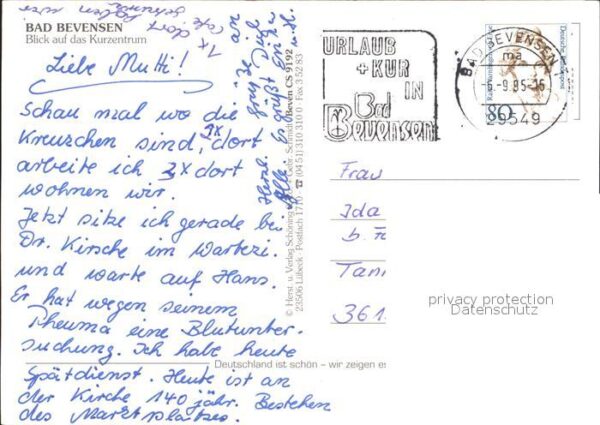 BAD BEVENSEN
Blick auf das Kurzentrum
1x dort haben wir
Cafe getrunken
Liebe Mutti!
Schau mal wo die
Kreuzchen sind, 2x dort
arbeite ich 3x dort
wohnen wir.
Jetzt sitze ich gerade bei
Dr. Kirsche im Wartezi.
und warte auf Hans.
Er hat wegen seinem
Rheuma eine Blutunter-
suchung. Ich habe heute
Spätdienst. Heute ist an
der Kirche 140 jähr. Bestehen
des Marktplatzes.
Herzl. Grüße an
Alle. Es grüßt Dich
Erika
u. H.
© Herst. u. Verlag Schöning & Co + Gebr. Schmidt
23506 Lübeck · Postfach 1710 · ☎ (0451) 310 310 · Fax 352 83
Beven CS 9192
Deutschland ist schön – wir zeigen es
URLAUB
+ KUR
IN
Bad
Bevensen
BAD BEVENSEN
ma
-6.-9.95-16
29549
Deutsche Bundespost
80
Frau
Ida
b.
Tann
361
privacy protection
Datenschutz